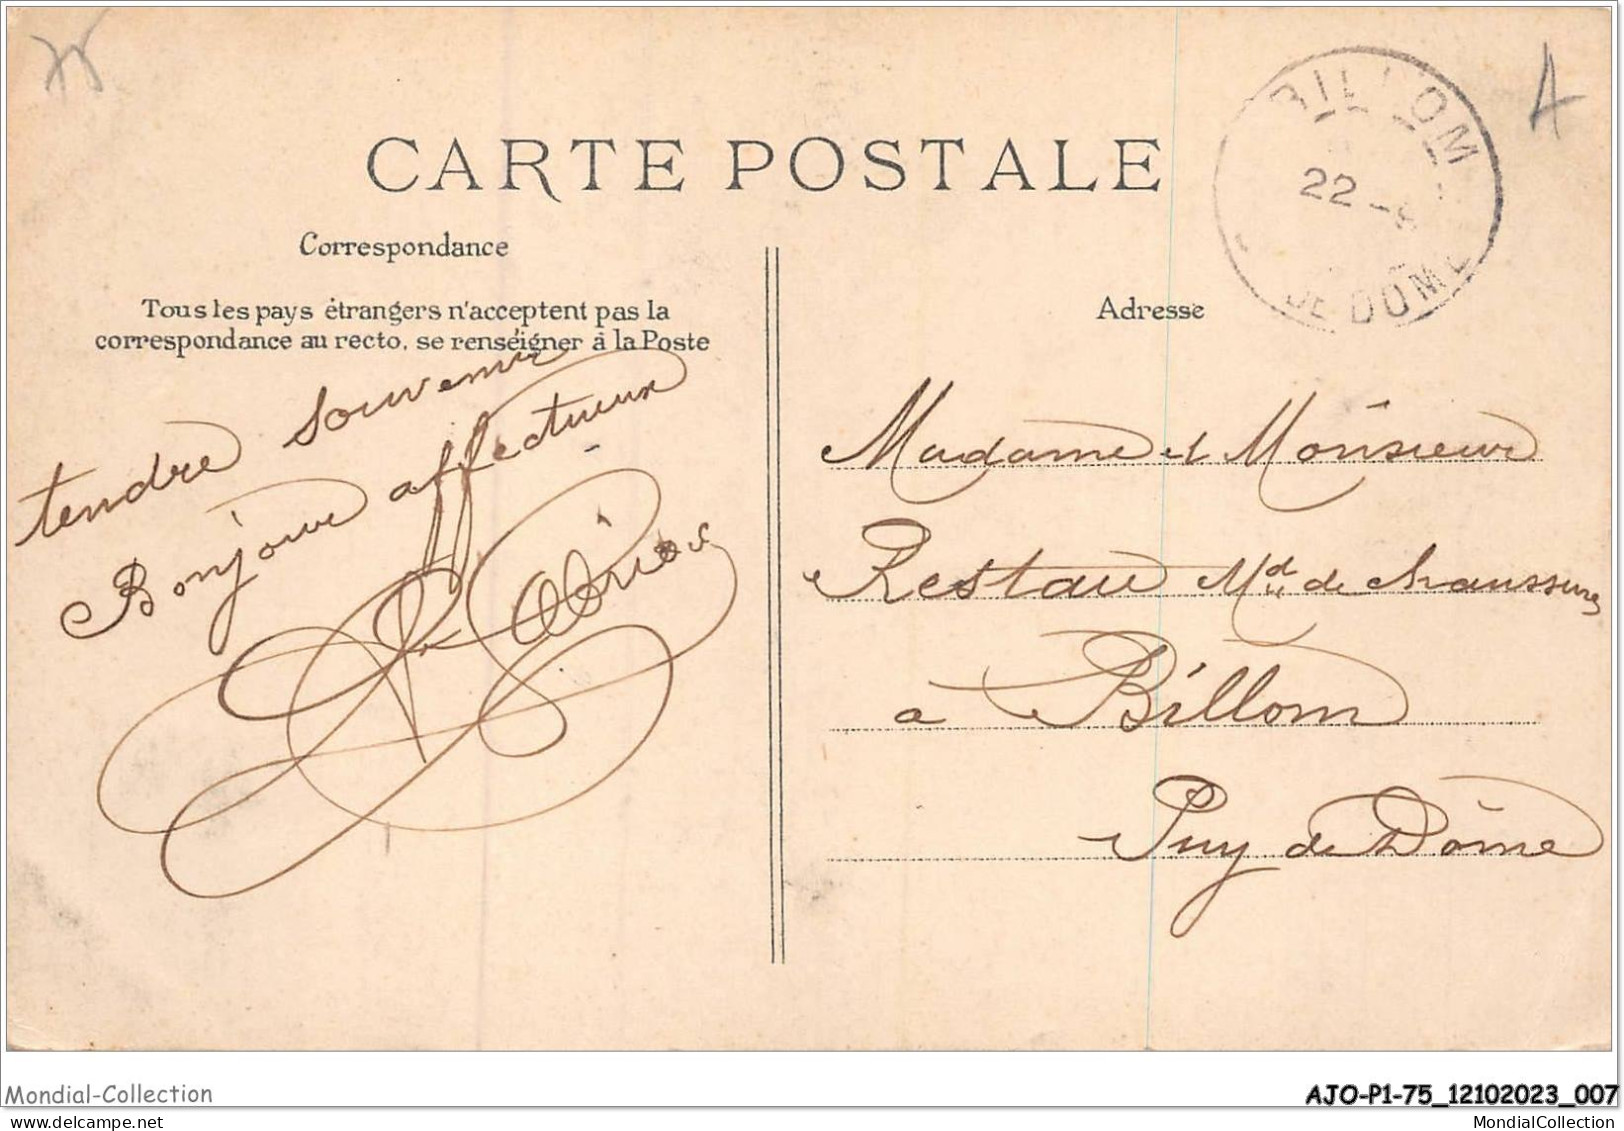 75
A
BILLOM
22 -
DE DOME
CARTE POSTALE
Correspondance
Tous les pays étrangers n'acceptent pas la
correspondance au recto, se renseigner à la Poste
tendre souvenir
Bonjour affectueux
Adresse
Madame et Monsieur
Restau Md de chaussures
a Billom
Puy de Dôme
Mondial-Collection
AJO-P1-75_12102023_007
MondialCollection.com
MondialCollection